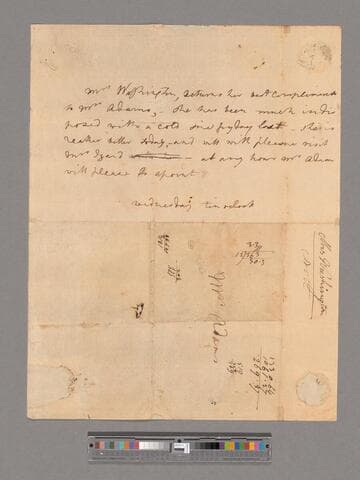 Mrs Washington, returns her best compliments
to Mrs Adams, - she has been much indis
posed with a cold sine fryday last - she is
reather better today, and will with pleasure visit
Mrs Izard - at any hour Mrs Adams
will please to apoint
wednesday ten oclock
Mrs Adams
Mrs Washington